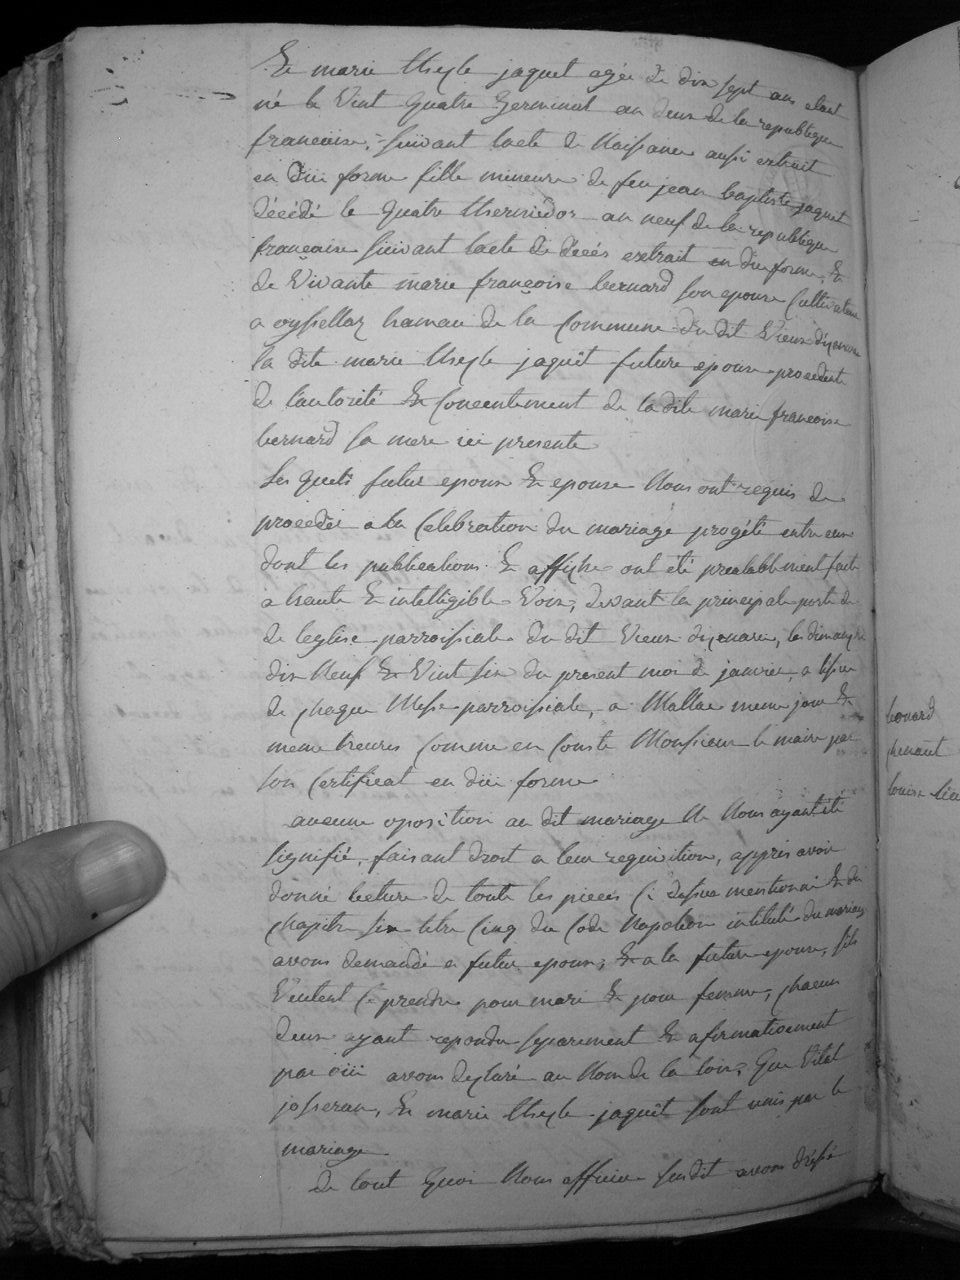 Et marie thecle jaquet agée de dix sept ans etant
né le vint quatre Germinal an deux de la republique
francaise, suivant lacte de Naissance aussi extrait
en düe forme fille mineure de feu jean baptiste jaquet
décédé le quatre thermidor an neuf de la republique
francaise suivant lacte de décés extrait en düe forme, Et
de vivante marie françoise bernard son epouse Cultivatrice
a hameau de la Commune du dit Vieux
la dite marie thecle jaquêt future epouse procedente
de lautorité Et Concentement de la dite marie francoise
bernard sa mere ici presente
Les quels futur epoux Et epouse Nous ont requis de
proceder a la Celebration du mariage progété entre eux
dont les publications Et affiche ont été prealablement faite
a haute Et intelligible Voix, devant la principale porte de
de leglise parroissiale du dit Vieux les dimanche
dix Neuf Et Vint six du present moi de janvier, a lissue
de chaque Messe parroissiale, a meme jour Et
meme heures Comme en Conste Monsieur le maire par
son Certificat en düe forme
aucune oposition au dit mariage Ne Nous ayant été
signifié, faisant droit a leur requisition, appris avoir
donné lecture de toute les pieces Ci dessue mentionné Et du
chapitre six titre Cinq du Code Napoleon intitulé du mariage
avons demandé a futur epoux, Et a la future epouse, sils
Veulent se prendre pour mari Et pour femme, chacun
deux ayant repondu separement Et afirmativement
par oüi avons declaré au Nom de la loix, Que Vital
josseran, Et marie thecle jaquêt sont unis par le
mariage
De tout Quoi Nous officier susdit avons dréssé
leonard
louise